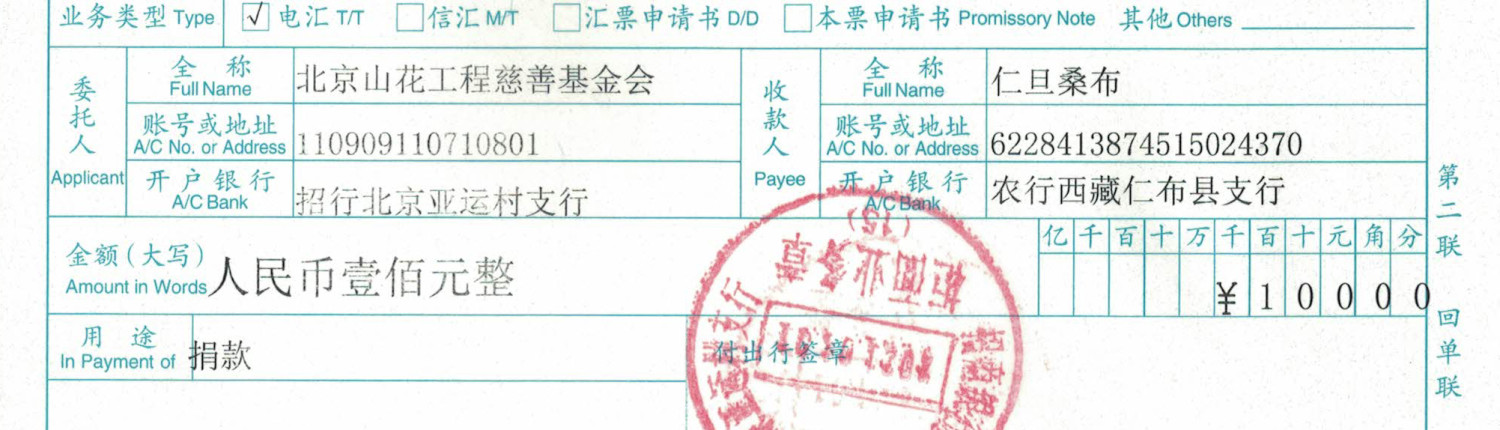 业务类型 Type √ 电汇 T/T 信汇 M/T 汇票申请书 D/D 本票申请书 Promissory Note 其他 Others
委托人 Applicant
全称 Full Name 北京山花工程慈善基金会
账号或地址 A/C No. or Address 110909110710801
开户银行 A/C Bank 招行北京亚运村支行
收款人 Payee
全称 Full Name 仁旦桑布
账号或地址 A/C No. or Address 6228413874515024370
开户银行 A/C Bank 农行西藏仁布县支行
金额(大写) Amount in Words 人民币壹佰元整
亿千百十万千百十元角分
¥10000
用途 In Payment of 捐款
付出行签章
(15)
柜面业务章
第二联 回单联